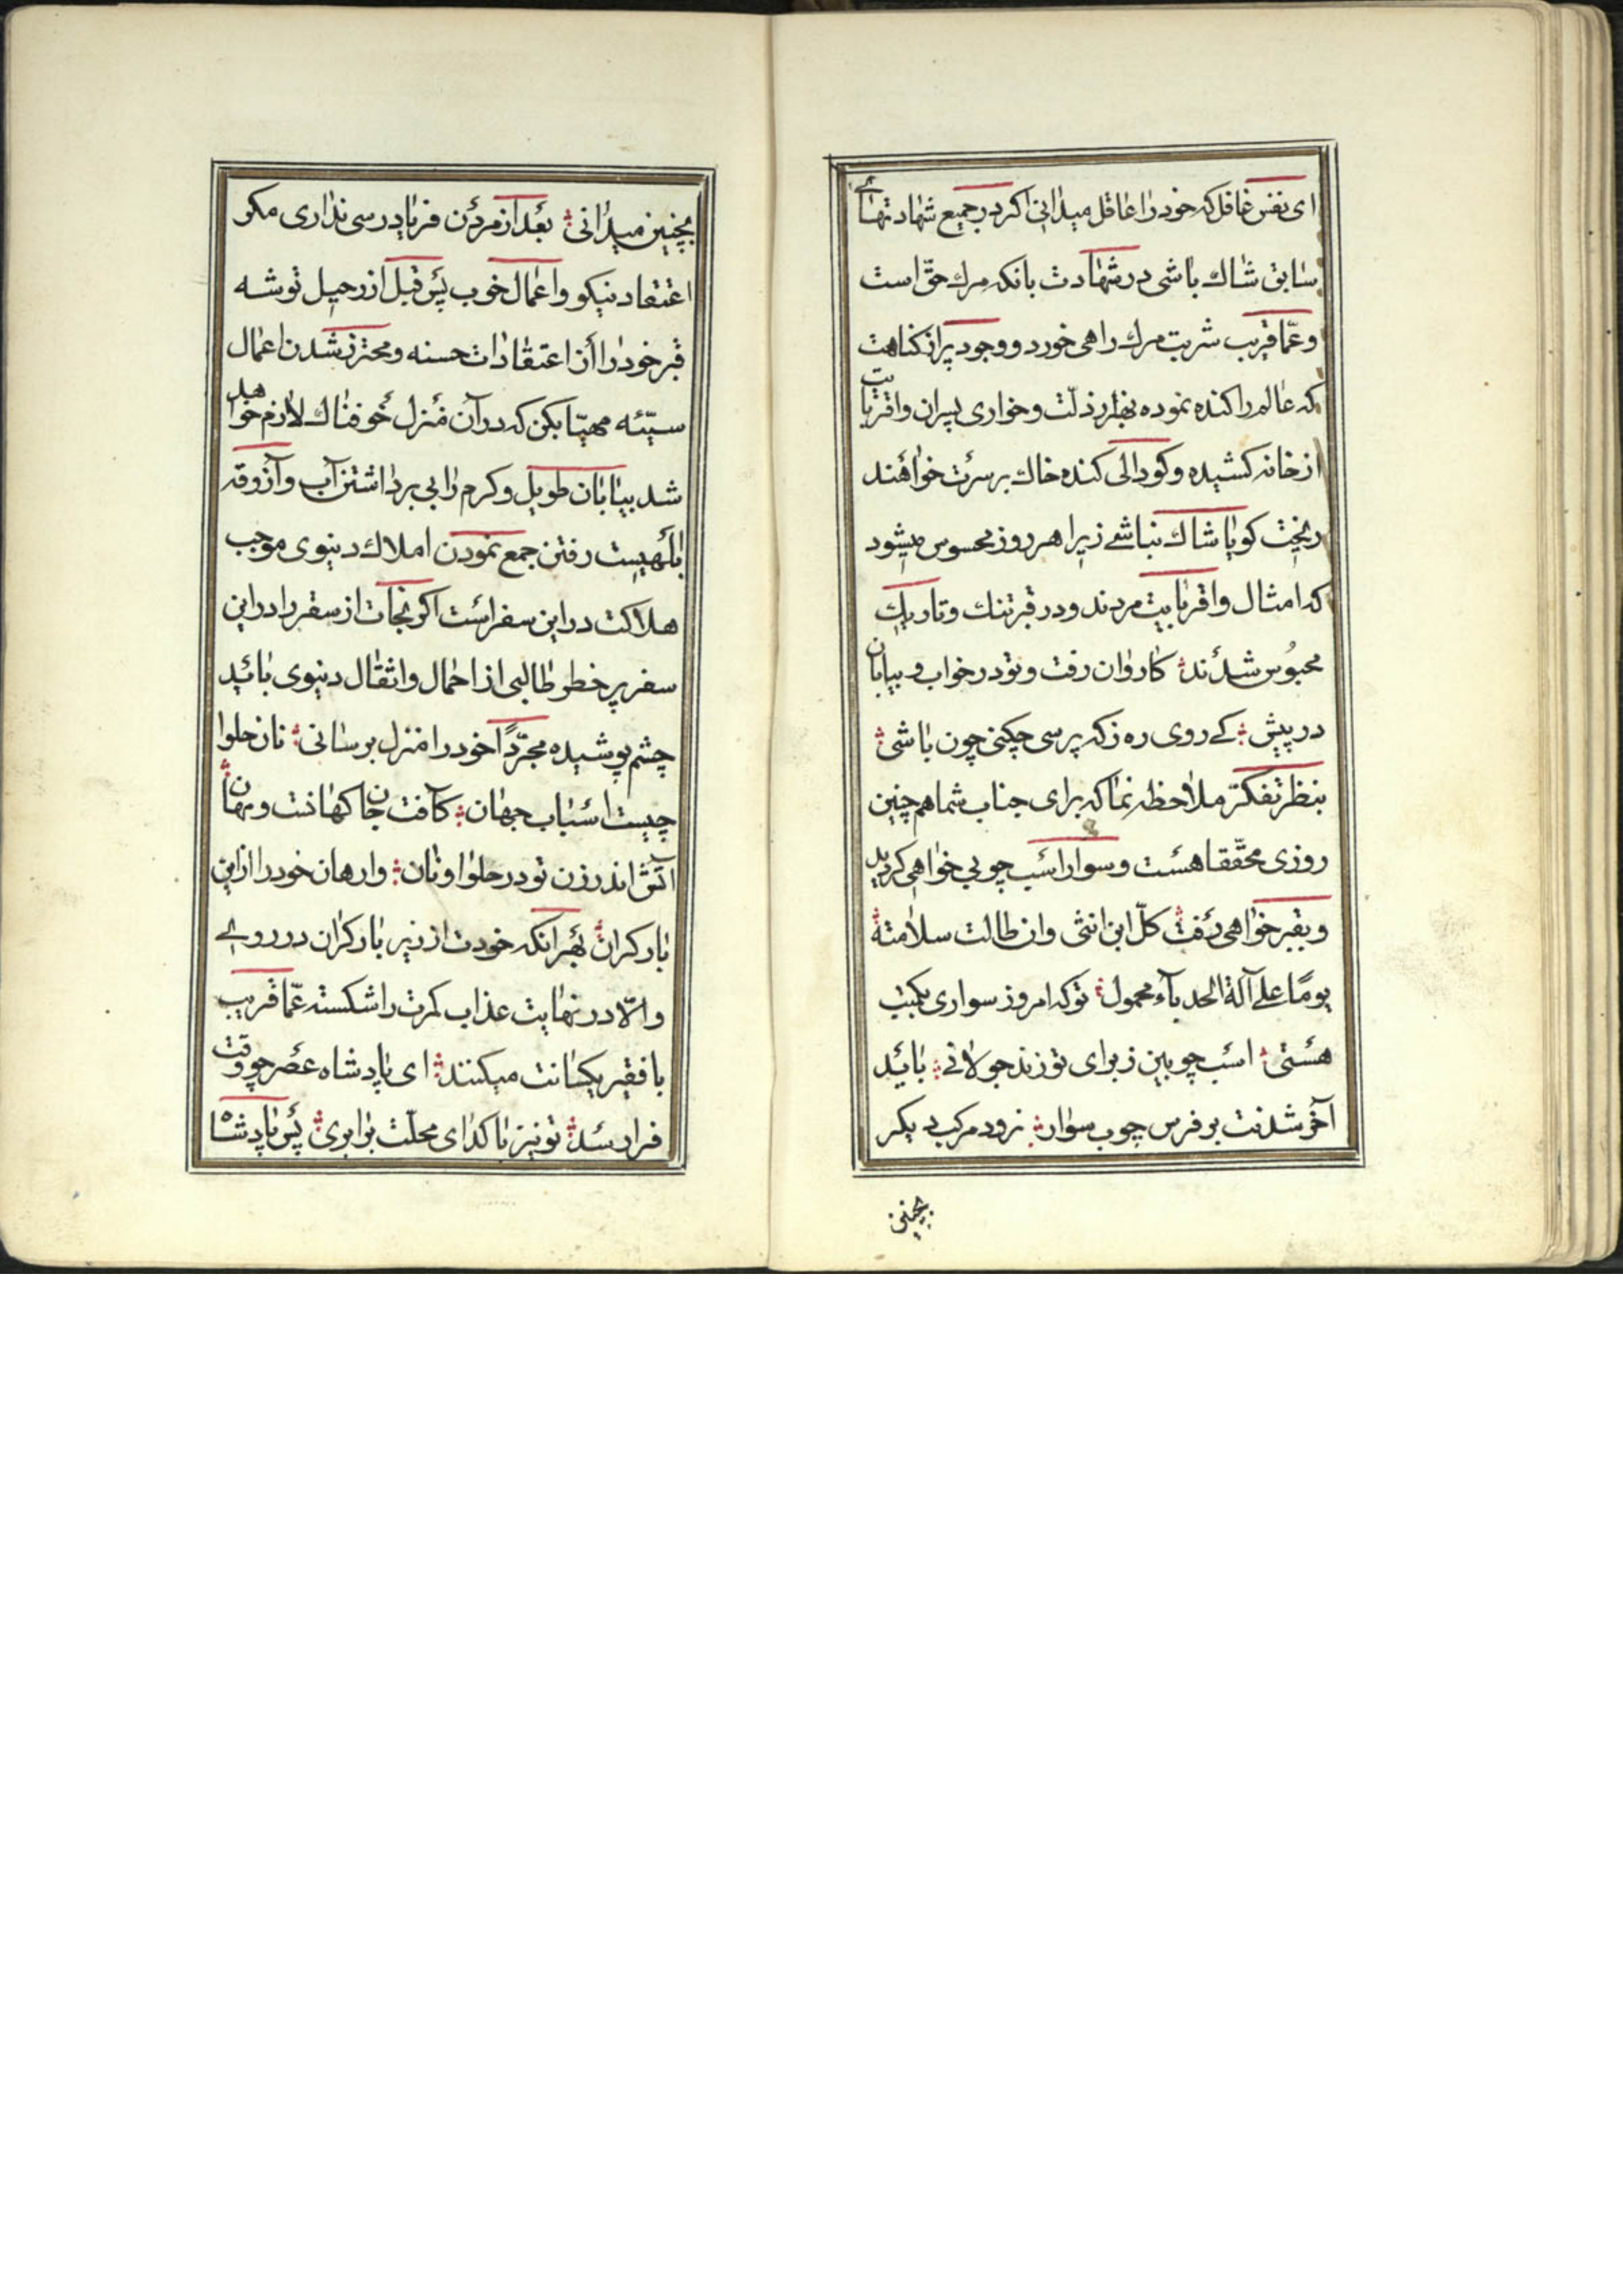 ای نفس غافل که خود را عاقل میدانی اکر در جمیع شهادتهائے
سابق شاك باشی در شهادت بانکه مرك حق است
و عمّا قریب شربت مرك را هی خورد و وجود پر از کناهت
که عالم را کنده نموده بهزار ذلّت و خواری پسران و اقربایت
از خانه کشیده و کودالی کنده خاك بر سرت خواهند
ریخت کویا شاك نباشے زیرا هر روز محسوس میشود
که امثال و اقربایت مردند و در قبر تنك و تاریك
محبوس شدند کاروان رفت و تو در خواب و بیابان
در پیش کے روی ره ز که پرسی چکنی چون باشی
بنظر تفکّر ملاحظه نما که برای جناب شما هم چنین
روزی محقّقا هست و سوار اسب چوبی خواهی کردید
و بقبر خواهی رفت کلّ ابن انثی و ان طالت سلامتهُ
یومًا علے آلة الحدبآء محمول تو که امروز سواری بکمیت
هستی اسب چوبین ز برای تو زند جولانے باید
آخر شدنت بر فرس چوب سوار زود مرکب دیکر
بچنین
بچنین میدانی بعد از مردن فریادرسی نداری مکر
اعتقاد نیکو و اعمال خوب پس قبل از رحیل توشه
قبر خود را از اعتقادات حسنه و محترز شدن اعمال
سیّئه مهیّا بکن که در آن منزل خوفناك لازم خواهد
شد بیابان طویل و کرم رابی برداشتن آب و آزوقه
ابلهیست رفتن جمع نمودن املاك دنیوی موجب
هلاکت در این سفر است اکر نجات از سقر را در این
سفر پر خطر طالبی از احمال و اثقال دنیوی باید
چشم پوشیده مجرّدًا خود را منزل برسانی نان حلوا
چیست اسباب جهان کآفت جان کهانت و مهان
آتش اندر زن تو در حلوا و نان وارهان خود را از این
بار کران بهر انکه خودت از زیر بار کران در روے
و الّا در نهایت عذاب کمرت را شکسته عمّا قریب
با فقیر یکسانت میکنند ای پادشاه عصر چو وقت
فرا رسد تو نیز با کدای محلّت برابری پس پادشاه